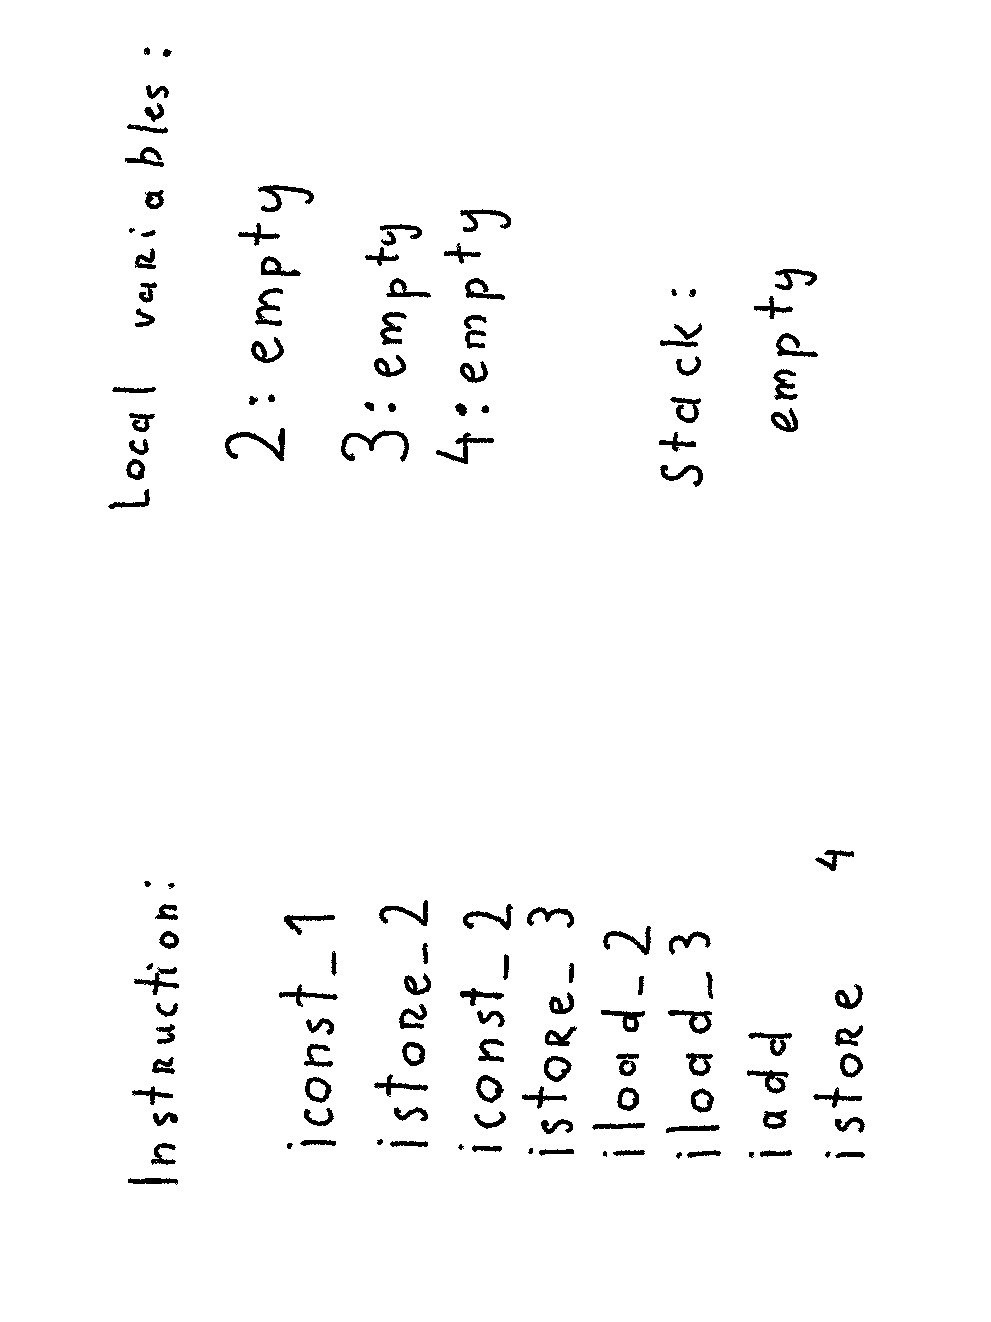 Instruction:
iconst_1
istore_2
iconst_2
istore_3
iload_2
iload_3
iadd
istore 4
Local variables:
2: empty
3: empty
4: empty
Stack:
empty